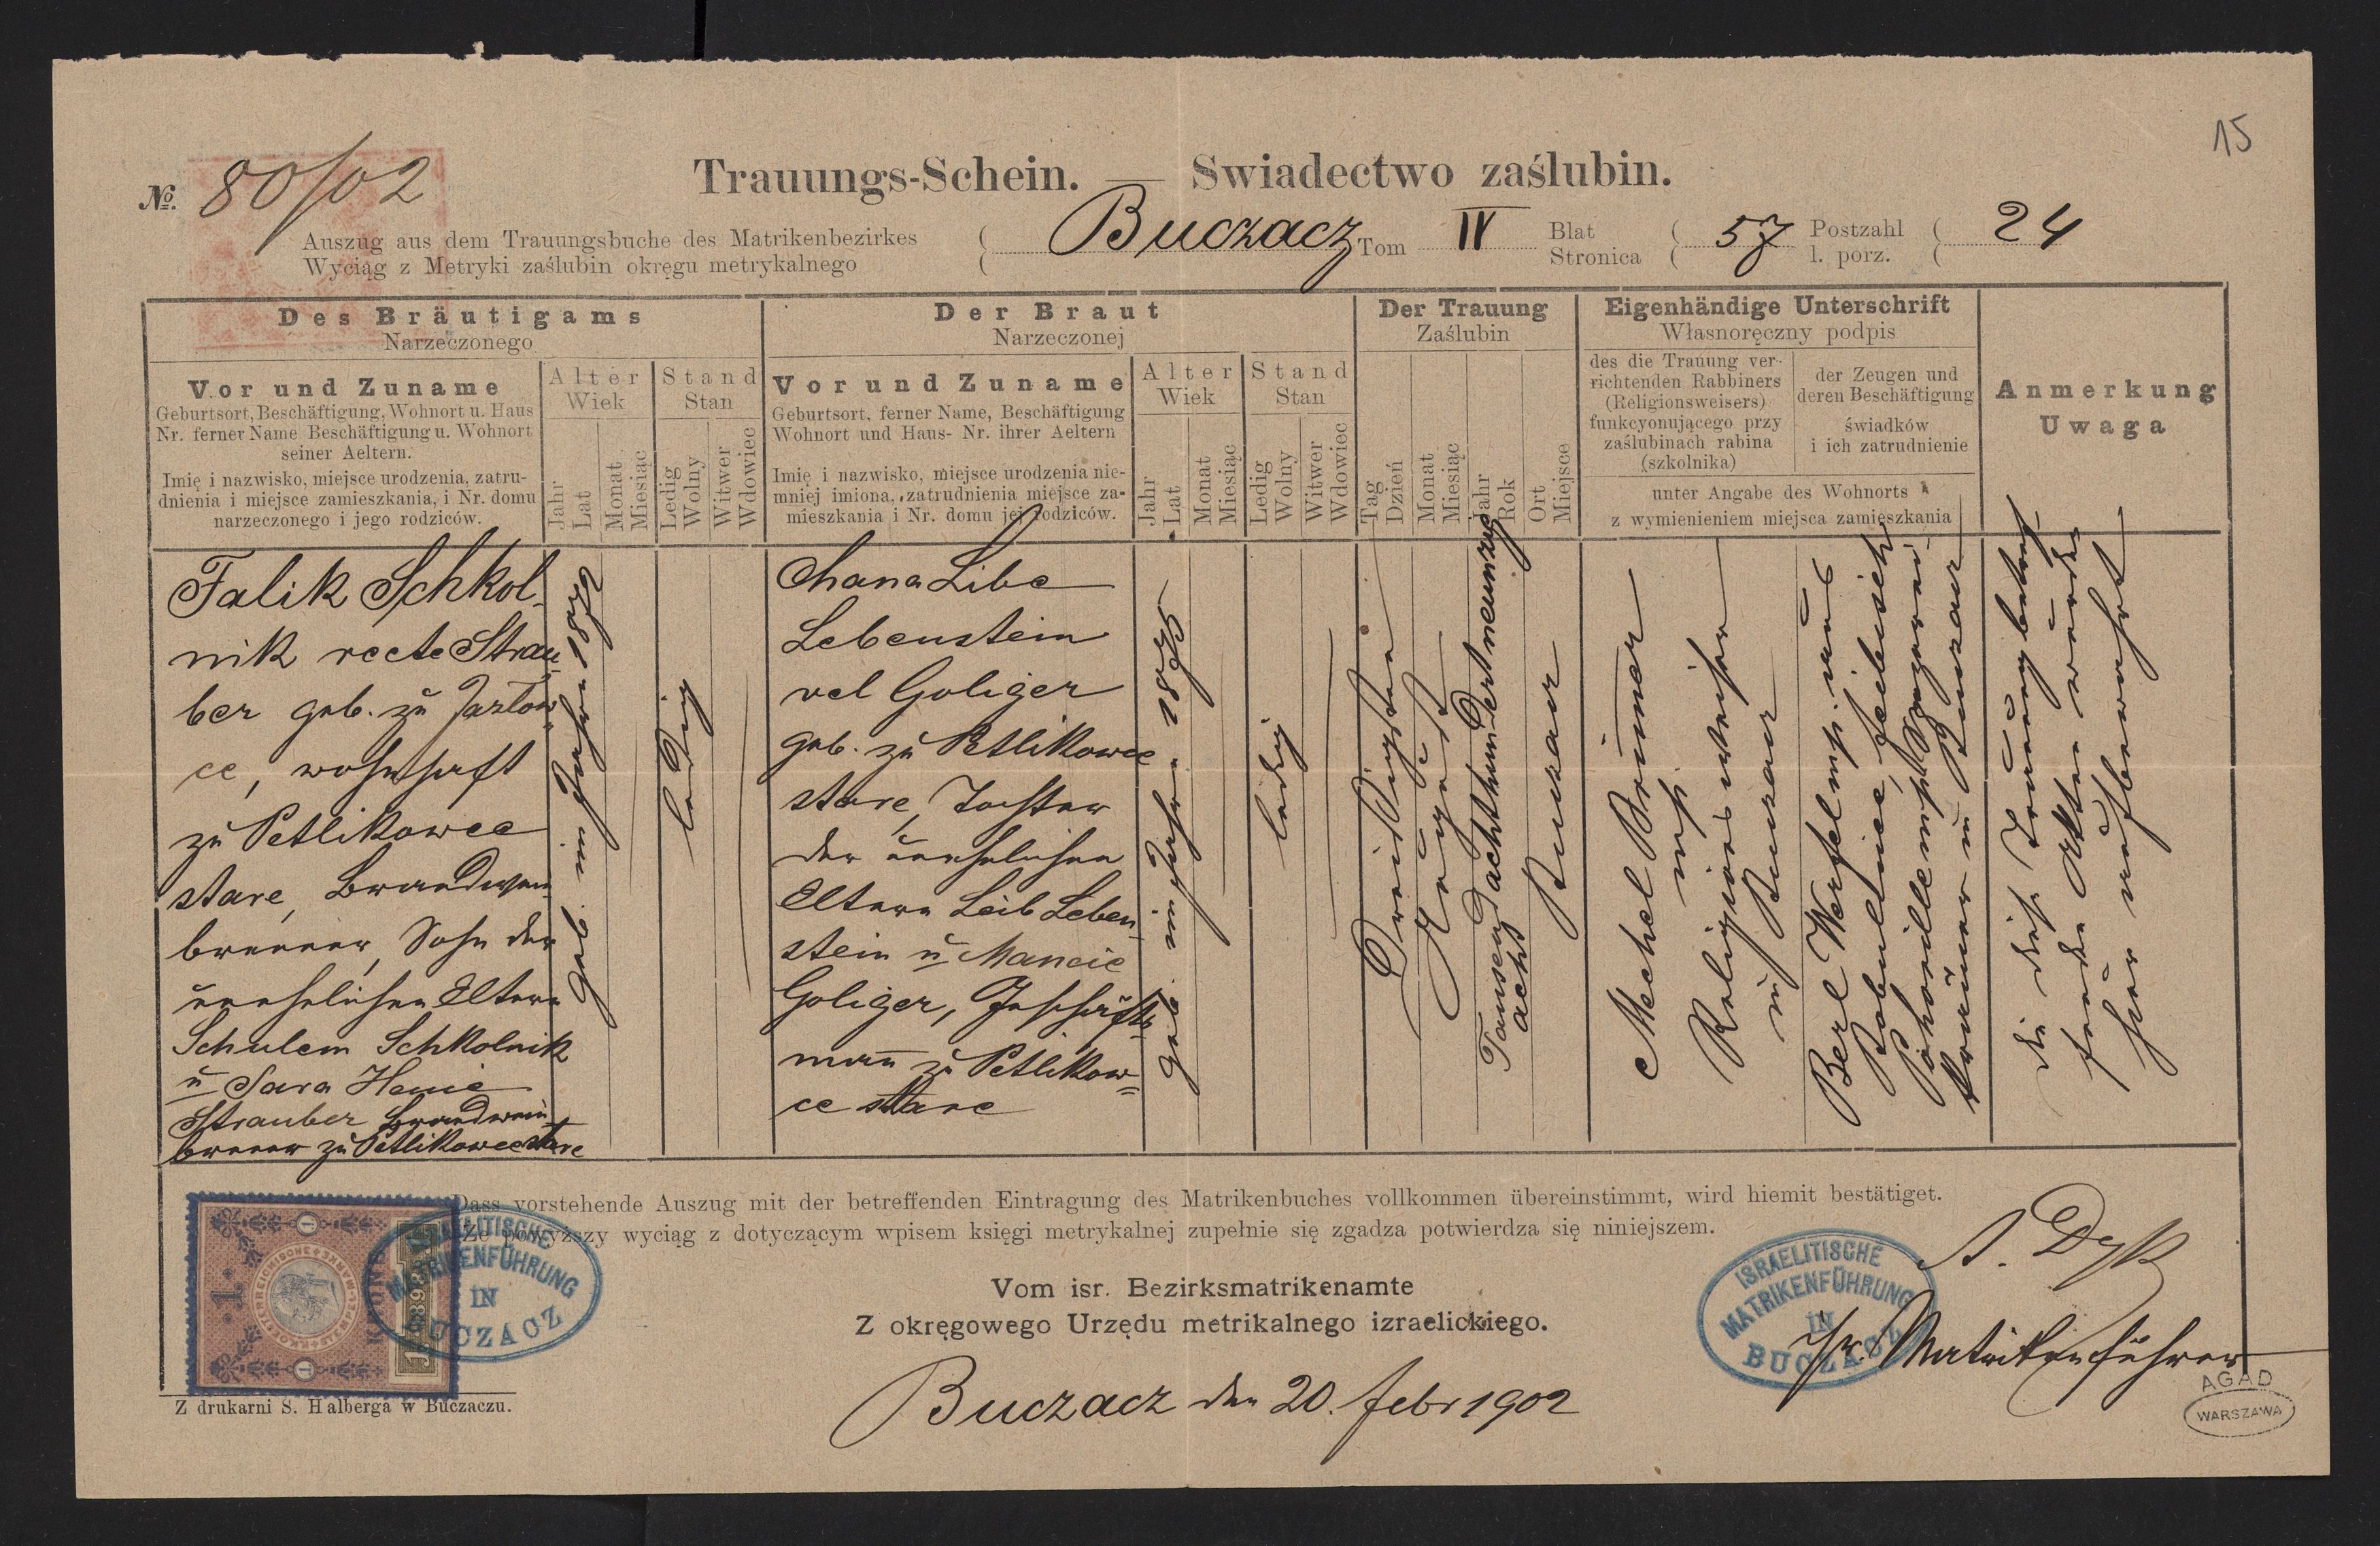 15
№. 80/02
Trauungs-Schein. — Swiadectwo zaślubin.
Auszug aus dem Trauungsbuche des Matrikenbezirkes
Wyciąg z Metryki zaślubin okręgu metrykalnego
Buczacz Tom IV Blat Stronica 57 Postzahl l. porz. 24
Des Bräutigams
Narzeczonego
Vor und Zuname
Geburtsort, Beschäftigung, Wohnort u. Haus
Nr. ferner Name Beschäftigung u. Wohnort
seiner Aeltern.
Imię i nazwisko, miejsce urodzenia, zatru-
dnienia i miejsce zamieszkania, i Nr. domu
narzeczonego i jego rodziców.
Alter
Wiek
Jahr
Lat
Monat
Miesiąc
Stand
Stan
Ledig
Wolny
Witwer
Wdowiec
Der Braut
Narzeczonej
Vor und Zuname
Geburtsort, ferner Name, Beschäftigung
Wohnort und Haus- Nr. ihrer Aeltern
Imię i nazwisko, miejsce urodzenia nie-
mniej imiona, zatrudnienia miejsce za-
mieszkania i Nr. domu jej rodziców.
Alter
Wiek
Jahr
Lat
Monat
Miesiąc
Stand
Stan
Ledig
Wolny
Witwer
Wdowiec
Der Trauung
Zaślubin
Tag
Dzień
Monat
Miesiąc
Jahr
Rok
Ort
Miejsce
Eigenhändige Unterschrift
Własnoręczny podpis
des die Trauung ver-
richtenden Rabbiners
(Religionsweisers)
funkcyonującego przy
zaślubinach rabina
(szkolnika)
der Zeugen und
deren Beschäftigung
świadków
i ich zatrudnienie
unter Angabe des Wohnorts
z wymienieniem miejsca zamieszkania
Anmerkung
Uwaga
Falik Schkol-
nik recte Strau-
ber geb. zu Jazłow-
ce, wohnhaft
zu Petlikowce
stare, Brandwein-
brenner, Sohn der
unehelichen Eltern
Schulem Schkolnik
u Sara Henie
Strauber Brandwein-
brenner zu Petlikowce stare
geb. im Jahre 1872
ledig
Chana Libe
Lebenstein
vel Goliger
geb. zu Petlikowce
stare, Tochter
der unehelichen
Eltern Leib Leben-
stein u Mancie
Goliger, Geschäfts-
mann zu Petlikow-
ce stare
geb. im Jahre 1875
ledig
Dreißigsten
August
Tausend achthundert neunzig
acht
Buczacz
Mechel Brümer
mp
Religionsweiser
in Buczacz
Berl Werfel mp
mp
in Buczacz
die diese Trauung betref-
fende Akten werden
hier aufbewahrt
Dass vorstehende Auszug mit der betreffenden Eintragung des Matrikenbuches vollkommen übereinstimmt, wird hiemit bestätiget.
Że powyższy wyciąg z dotyczącym wpisem księgi metrykalnej zupełnie się zgadza potwierdza się niniejszem.
ISRAELITISCHE
MATRIKENFÜHRUNG
IN
BUCZACZ
Vom isr. Bezirksmatrikenamte
Z okręgowego Urzędu metrikalnego izraelickiego.
Buczacz den 20. Febr 1902
ISRAELITISCHE
MATRIKENFÜHRUNG
IN
BUCZACZ
A. Dyk
isr. Matrikenführer
Z drukarni S. Halberga w Buczaczu.
AGAD
WARSZAWA